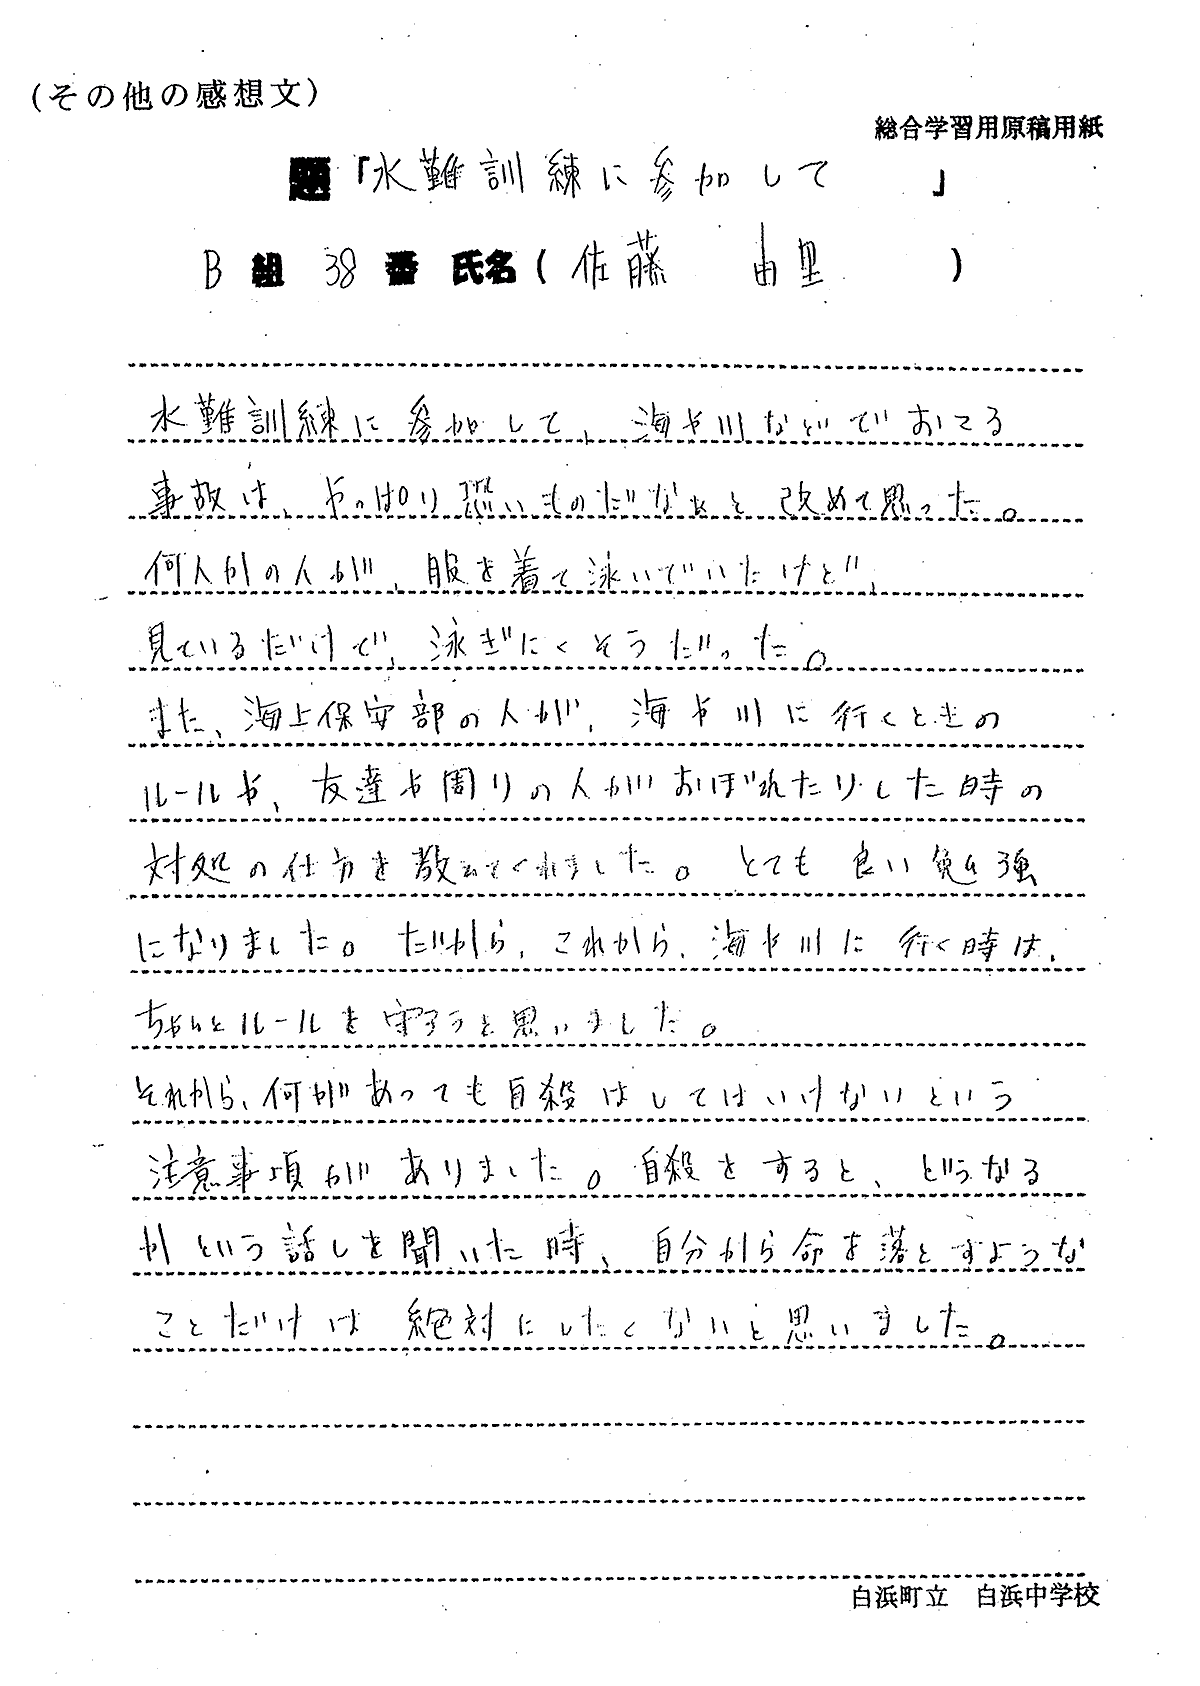 （その他の感想文）
総合学習用原稿用紙
題「水難訓練に参加して」
B組 38番 氏名（佐藤 由里）
水難訓練に参加して、海や川などでおこる
事故は、やっぱり恐いものだなぁと改めて思った。
何人かの人が、服を着て泳いでいたけど、
見ているだけで、泳ぎにくそうだった。
また、海上保安部の人が、海や川に行くときの
ルールや、友達や周りの人がおぼれたりした時の
対処の仕方を教えてくれました。とても良い勉強
になりました。だから、これから、海や川に行く時は、
ちゃんとルールを守ろうと思いました。
それから、何があっても自殺はしてはいけないという
注意事項がありました。自殺をすると、どうなる
かという話しを聞いた時、自分から命を落とすような
ことだけは絶対にしたくないと思いました。
白浜町立 白浜中学校